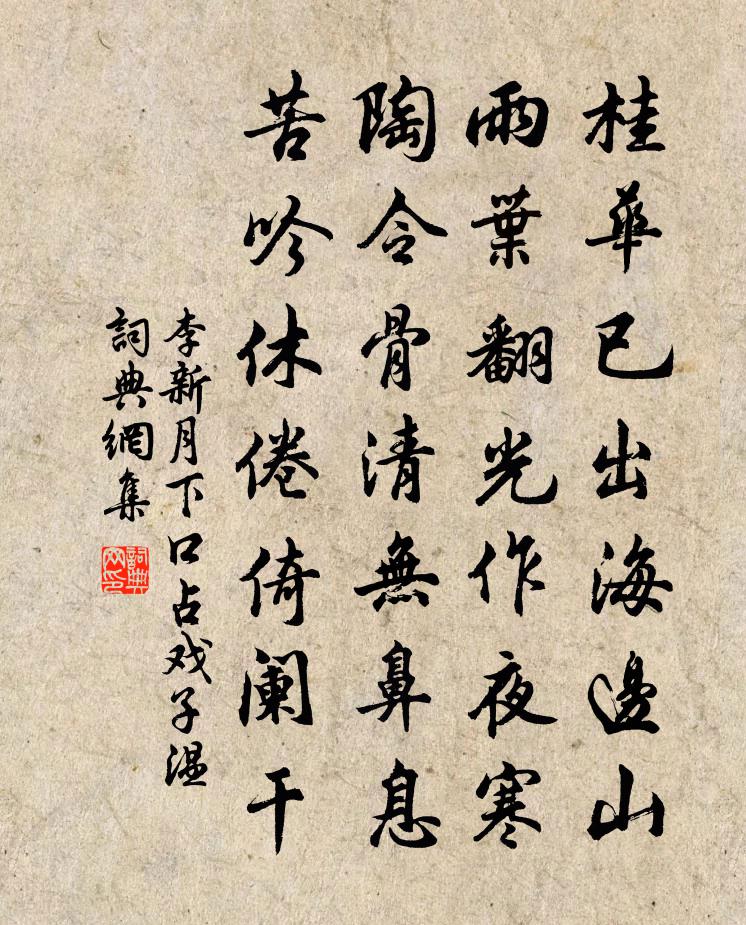 桂華已出海邊山
雨葉翻光作夜寒
陶令骨清無鼻息
苦吟休倦倚闌干
李新月下口占戏子温
詞典網集
詞典網印